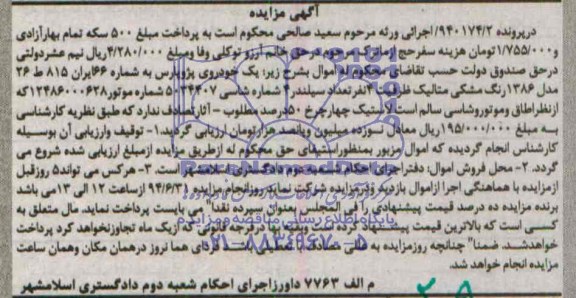 آگهی مزایده
درپرونده ۹۴۰۱۷۴/۲ اجرائی ورثه مرحوم سعید صالحی محکوم است به پرداخت مبلغ ۵۰۰ سکه تمام بهارآزادی
و ۱/۷۵۵/۰۰۰ تومان هزینه سفرحج ازماترک مرحوم درحق خانم آرزو توکلی وفا ومبلغ ۴/۲۸۰/۰۰۰ ریال نیم عشردولتی
درحق صندوق دولت حسب تقاضای محکوم له اموال بشرح زیر: یک خودروی پژوپارس به شماره ۶۶ایران ۸۱۵ ط ۲۶
مدل ۱۳۸۶ رنگ مشکی متالیک ظرفیت ۴نفرتعداد سیلندر۴ شماره شاسی ۵۰۳۴۴۰۷ شماره موتور ۱۲۴۸۶۰۰۰۶۲۸ که
ازنظراطاق وموتوروشاسی سالم است لاستیک چهارچرخ ۵۰درصد مطلوب - آثارتصادف ندارد که طبق نظریه کارشناسی
به مبلغ ۱۹۵/۰۰۰/۰۰۰ ریال معادل نوزده میلیون وپانصد هزارتومان ارزیابی گردید. ۱- توقیف وارزیابی آن بوسیله
کارشناس انجام گردیده که اموال مزبور بمنظوراستیفای حق محکوم له ازطریق مزایده ازمبلغ ارزیابی شده شروع می
گردد. ۲- محل فروش اموال: دفتراجرای احکام شعبه دوم دادگستری اسلامشهر است. ۳- هرکس می تواند۵ روزقبل
ازمزایده با هماهنگی اجرا ازاموال بازدید ودرمزایده شرکت نماید روزانجام مزایده ۹۴/۶/۳۱ ازساعت ۱۲ الی ۱۳می باشد
برنده مزایده ده درصد قیمت پیشنهادی را فی المجلس بعنوان سپرده نقداً می بایست پرداخت نماید. مال متعلق به
کسی است که بالاترین قیمت پیشنهاد کرده است وبقیه بها درفرجه قانونی که ازیک ماه تجاوزنخواهد کرد پرداخت
خواهدشد. ضمناً چنانچه روزمزایده به تعطیلی فردای هما نروز درهمان مکان وهمان ساعت
مزایده انجام خواهد شد.
م الف ۷۷۶۳ داورزاجرای احکام شعبه دوم دادگستری اسلامشهر
پایگاه اطلاع رسانی مناقصه ومزایده
۰۲۱-۸۸۳۴۹۶۷۰-۵